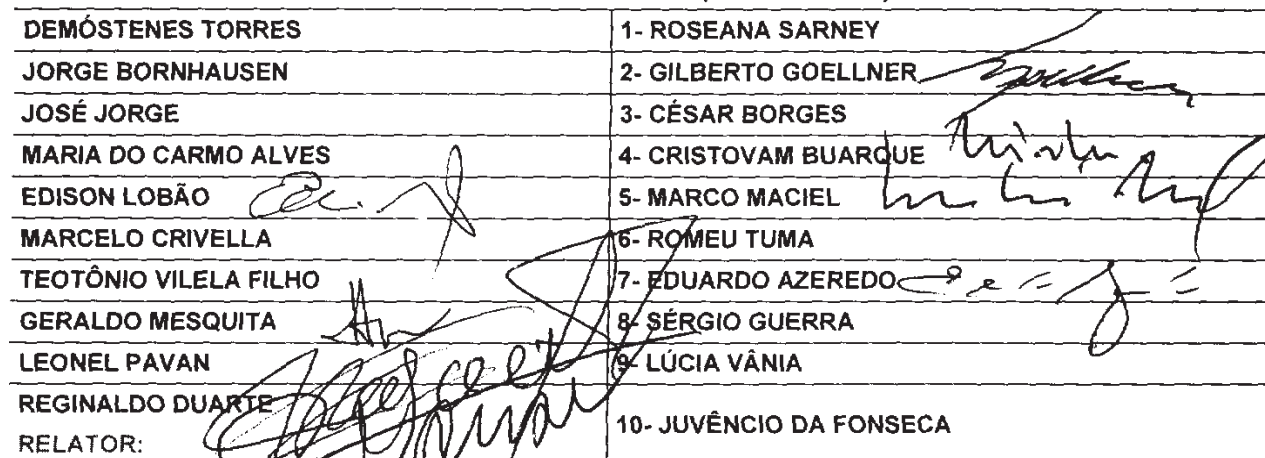 DEMÓSTENES TORRES 1- ROSEANA SARNEY
JORGE BORNHAUSEN 2- GILBERTO GOELLNER
JOSÉ JORGE 3- CÉSAR BORGES
MARIA DO CARMO ALVES 4- CRISTOVAM BUARQUE
EDISON LOBÃO 5- MARCO MACIEL
MARCELO CRIVELLA 6- ROMEU TUMA
TEOTÔNIO VILELA FILHO 7- EDUARDO AZEREDO
GERALDO MESQUITA 8- SÉRGIO GUERRA
LEONEL PAVAN 9- LÚCIA VÂNIA
REGINALDO DUARTE
RELATOR: 10- JUVÊNCIO DA FONSECA